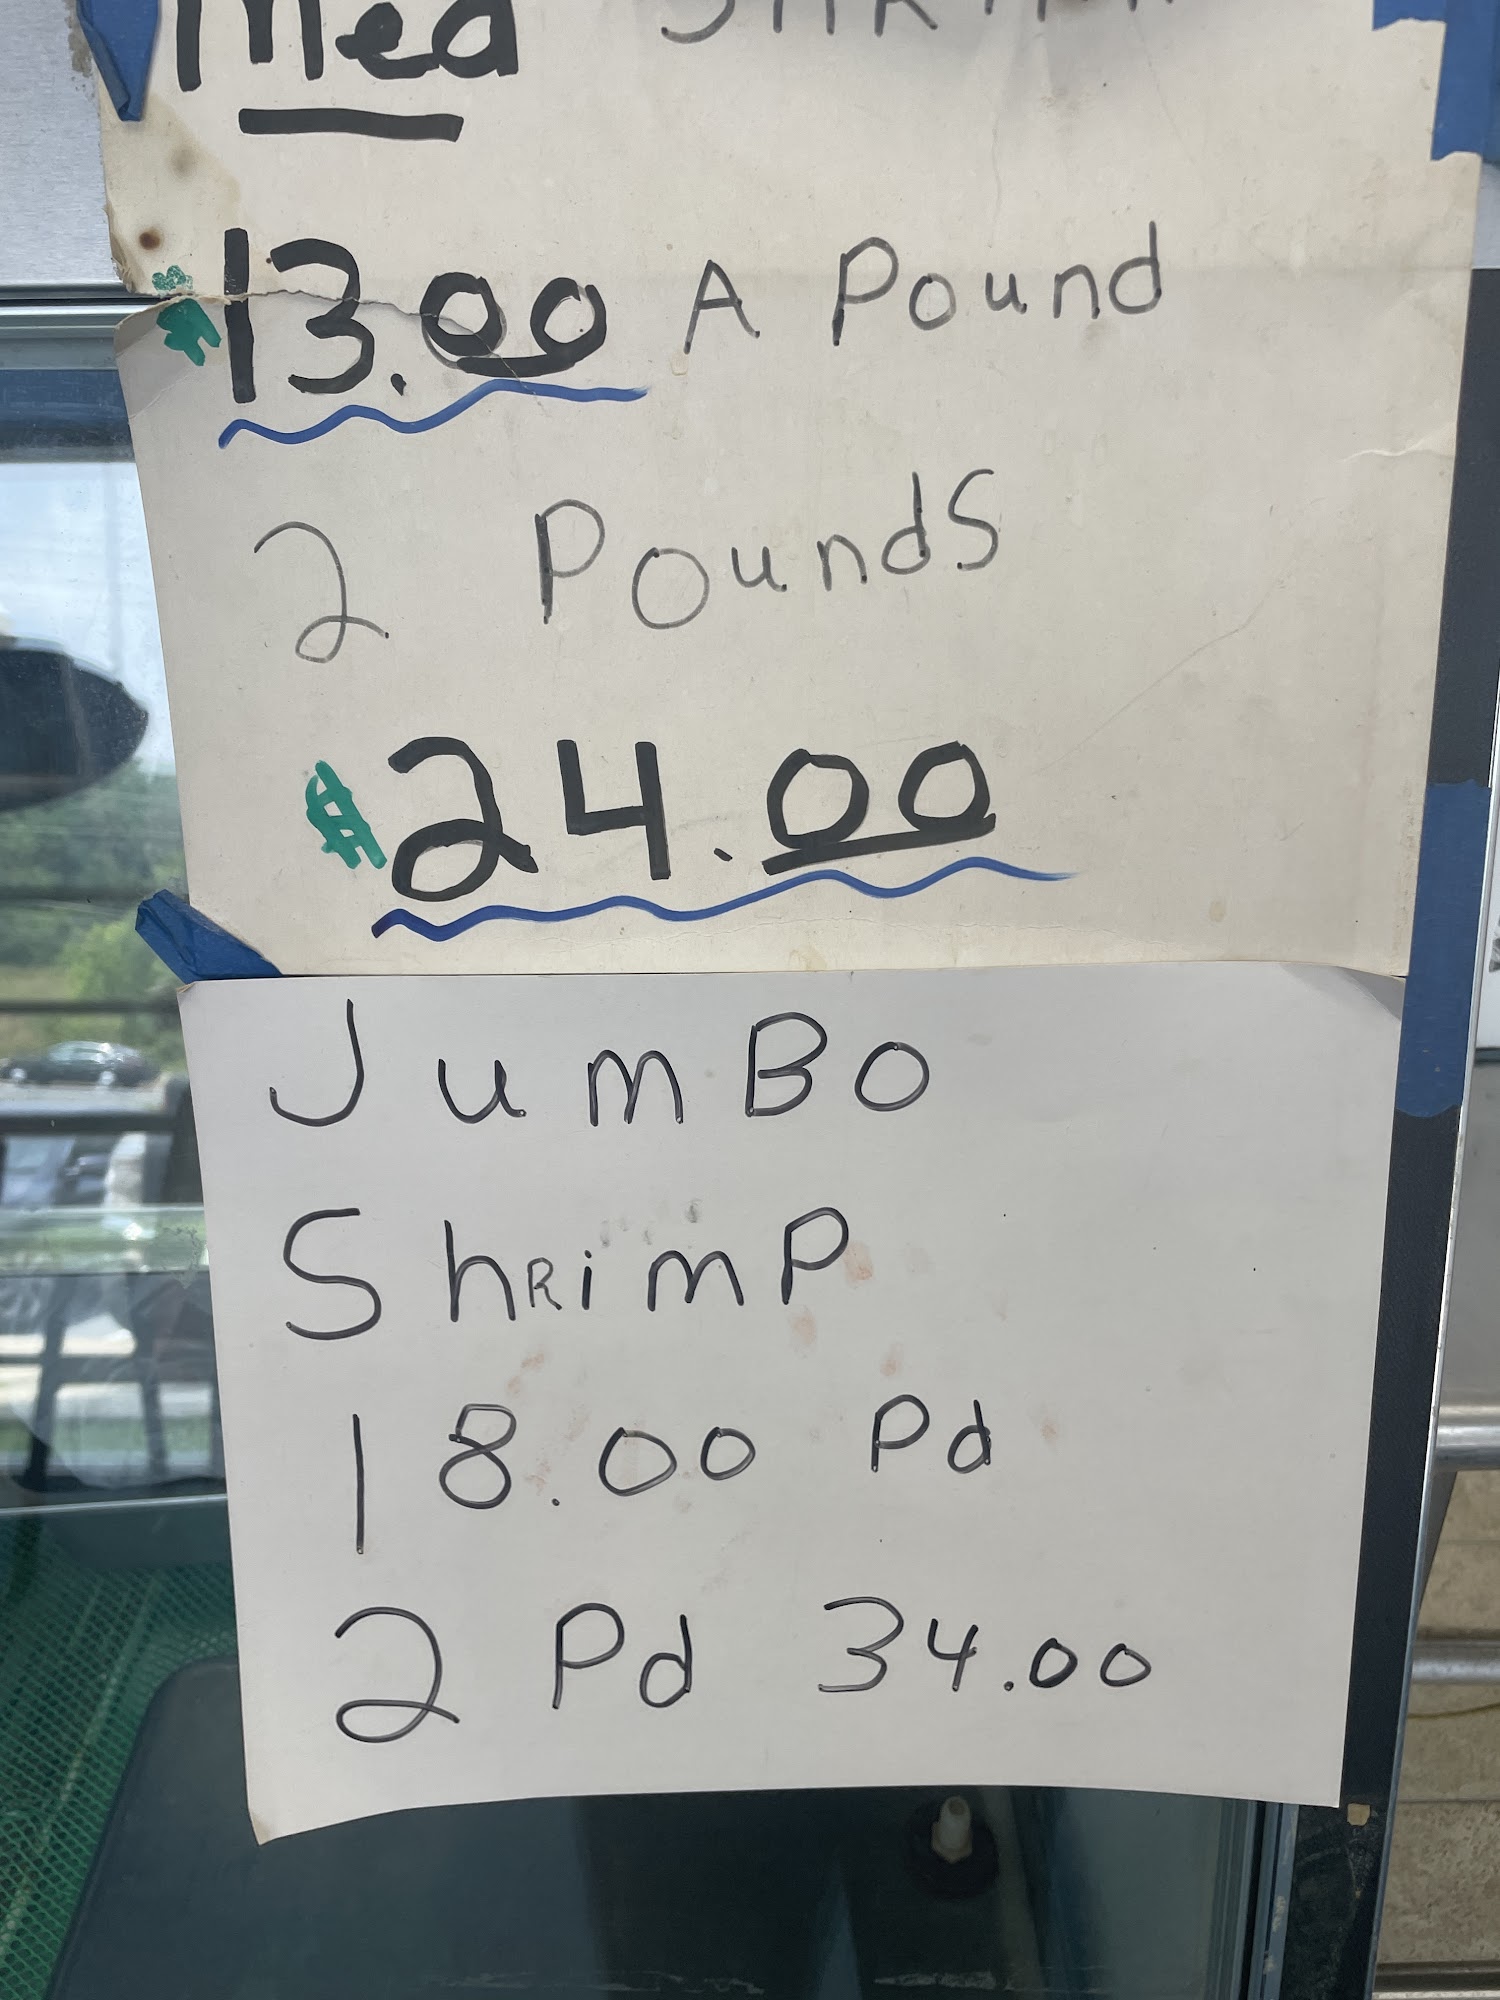 Med SHRIMP
$13.00 A Pound
2 Pounds
$24.00
JumBo
ShRimP
18.00 Pd
2 Pd 34.00